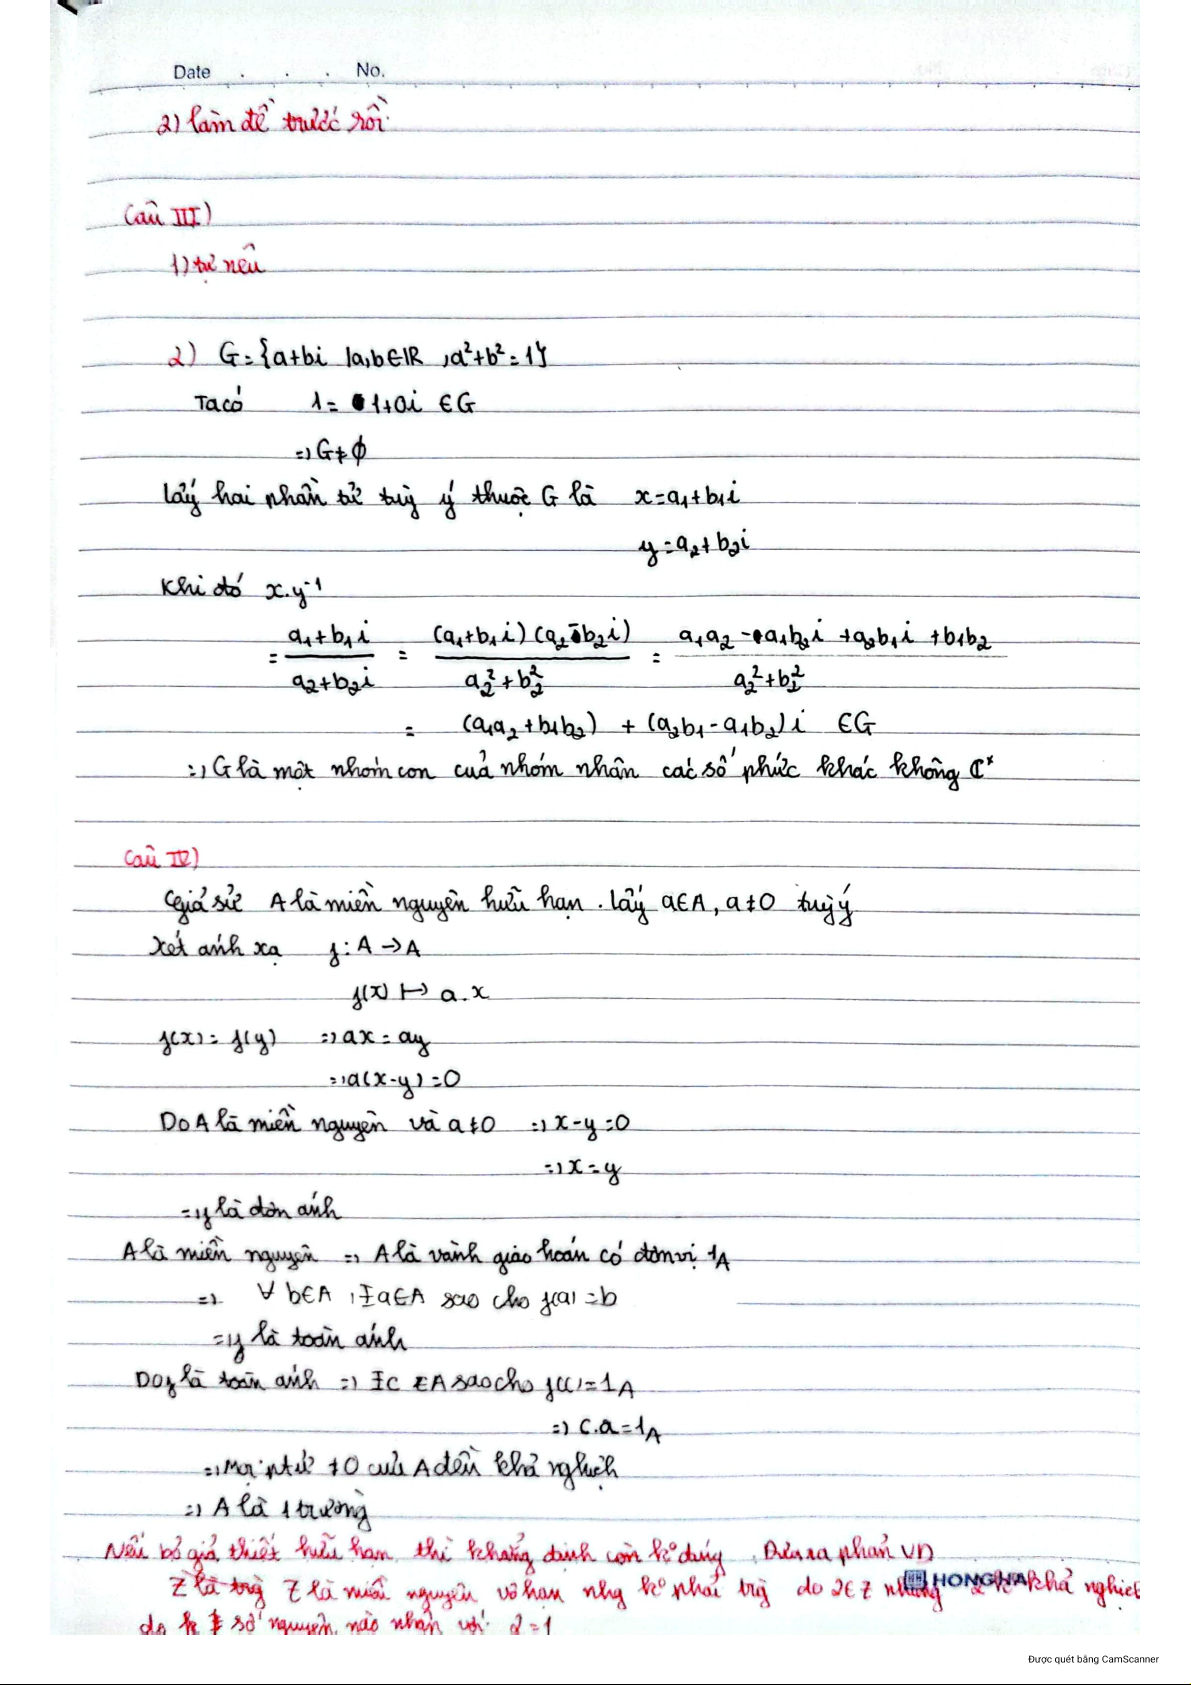 Date . . . No.
2) làm đề trước rồi
Câu III)
1) tự nêu
2) G = {a+bi | a,b ∈ ℝ, a² + b² = 1}
Ta có 1 = 1+0i ∈ G
=> G ≠ ∅
Lấy hai phần tử tuỳ ý thuộc G là x = a₁ + b₁i
y = a₂ + b₂i
Khi đó x.y⁻¹
= (a₁ + b₁i)/(a₂ + b₂i) = (a₁ + b₁i)(a₂ - b₂i)/(a₂² + b₂²) = (a₁a₂ - a₁b₂i + a₂b₁i + b₁b₂)/(a₂² + b₂²)
= (a₁a₂ + b₁b₂) + (a₂b₁ - a₁b₂)i ∈ G
=> G là một nhóm con của nhóm nhân các số phức khác không ℂ*
Câu IV)
Giả sử A là miền nguyên hữu hạn. Lấy a ∈ A, a ≠ 0 tuỳ ý
Xét ánh xạ f: A → A
f(x) ↦ a.x
f(x) = f(y) => ax = ay
=> a(x-y) = 0
Do A là miền nguyên và a ≠ 0 => x - y = 0
=> x = y
=> f là đơn ánh
A là miền nguyên => A là vành giao hoán có đơn vị 1A
=> ∀ b ∈ A, ∃ a ∈ A sao cho f(a) = b
=> f là toàn ánh
Do f là toàn ánh => ∃ c ∈ A sao cho f(c) = 1A
=> c.a = 1A
=> Mọi ptử ≠ 0 của A đều khả nghịch
=> A là 1 trường
Nếu bỏ giả thiết hữu hạn thì khẳng định còn k° đúng. Đưa ra phản VD
Z là trg Z là miền nguyên vô hạn nhg k° phải trg do 2 ∈ Z nhưng 2 k° khả nghịch
do k ∃ số nguyên nào nhân với 2 = 1
HONG HA
Được quét bằng CamScanner